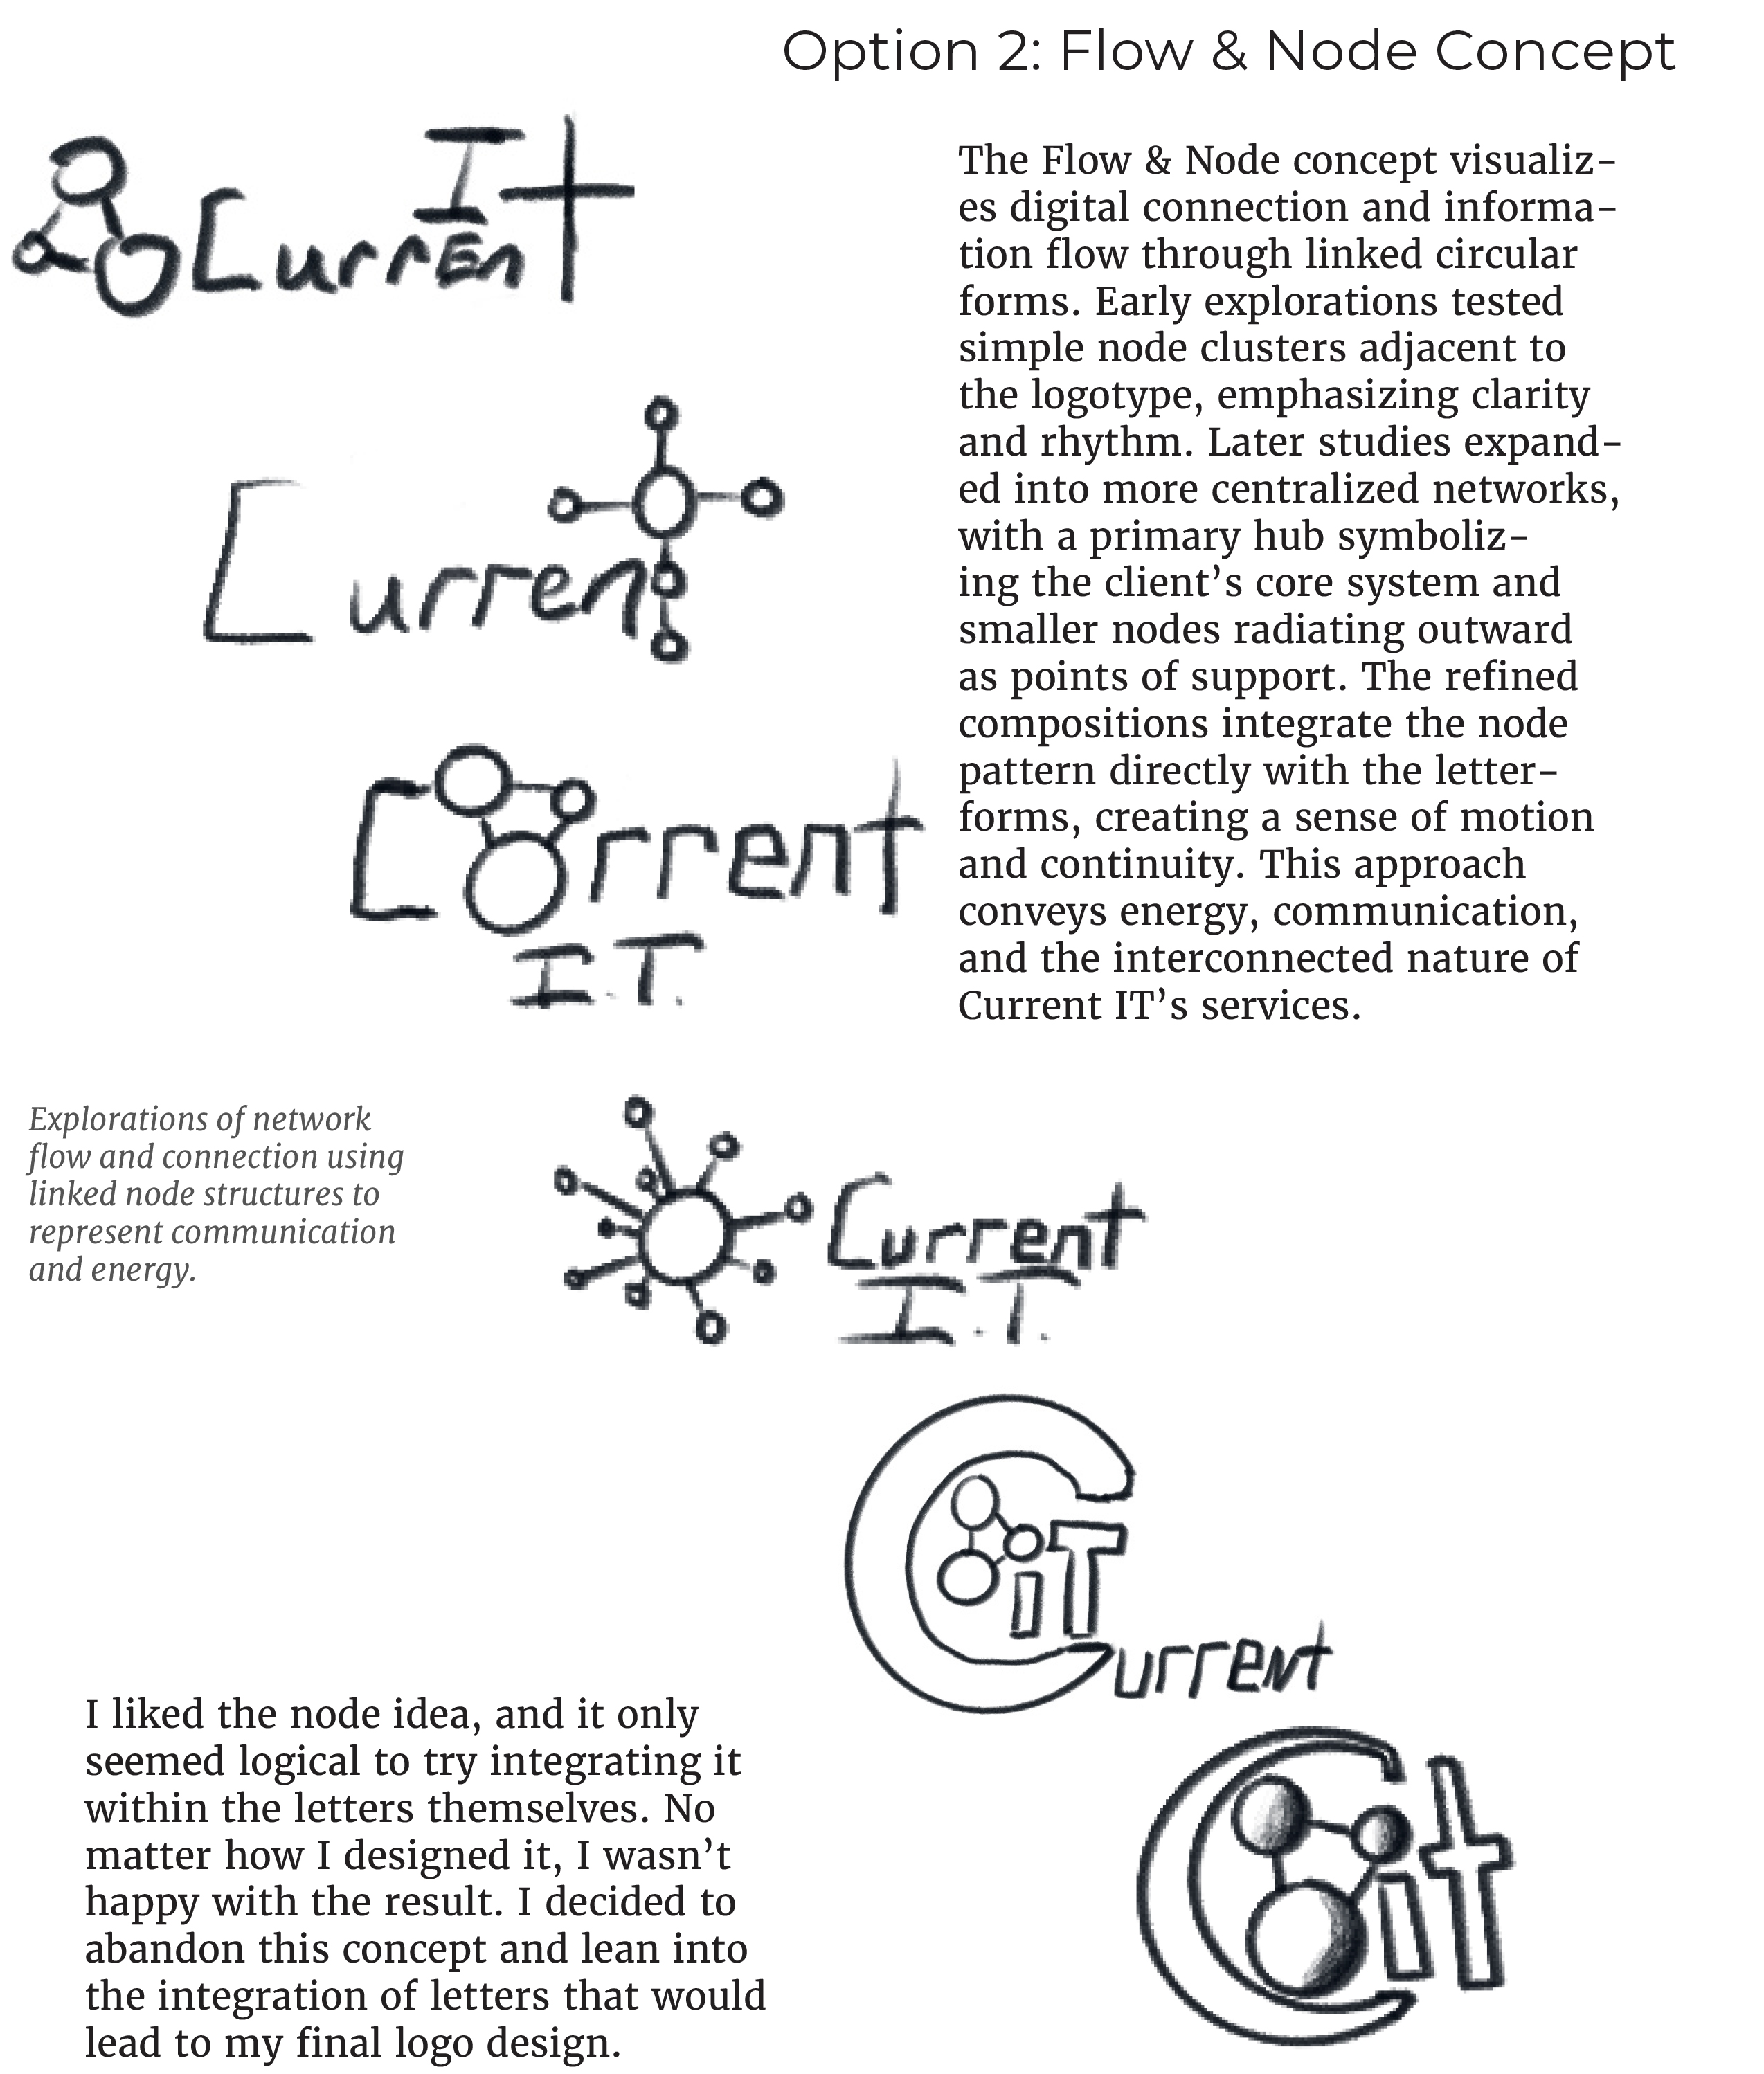 Option 2: Flow & Node Concept
It
Current
The Flow & Node concept visualiz-
es digital connection and informa-
tion flow through linked circular
forms. Early explorations tested
simple node clusters adjacent to
the logotype, emphasizing clarity
and rhythm. Later studies expand-
ed into more centralized networks,
with a primary hub symboliz-
ing the client's core system and
smaller nodes radiating outward
as points of support. The refined
compositions integrate the node
pattern directly with the letter-
forms, creating a sense of motion
and continuity. This approach
conveys energy, communication,
and the interconnected nature of
Current IT's services.
Curren
Corrent
I.T.
Explorations of network
flow and connection using
linked node structures to
represent communication
and energy.
Current
I.T.
CiT
urrent
Cit
I liked the node idea, and it only
seemed logical to try integrating it
within the letters themselves. No
matter how I designed it, I wasn't
happy with the result. I decided to
abandon this concept and lean into
the integration of letters that would
lead to my final logo design.